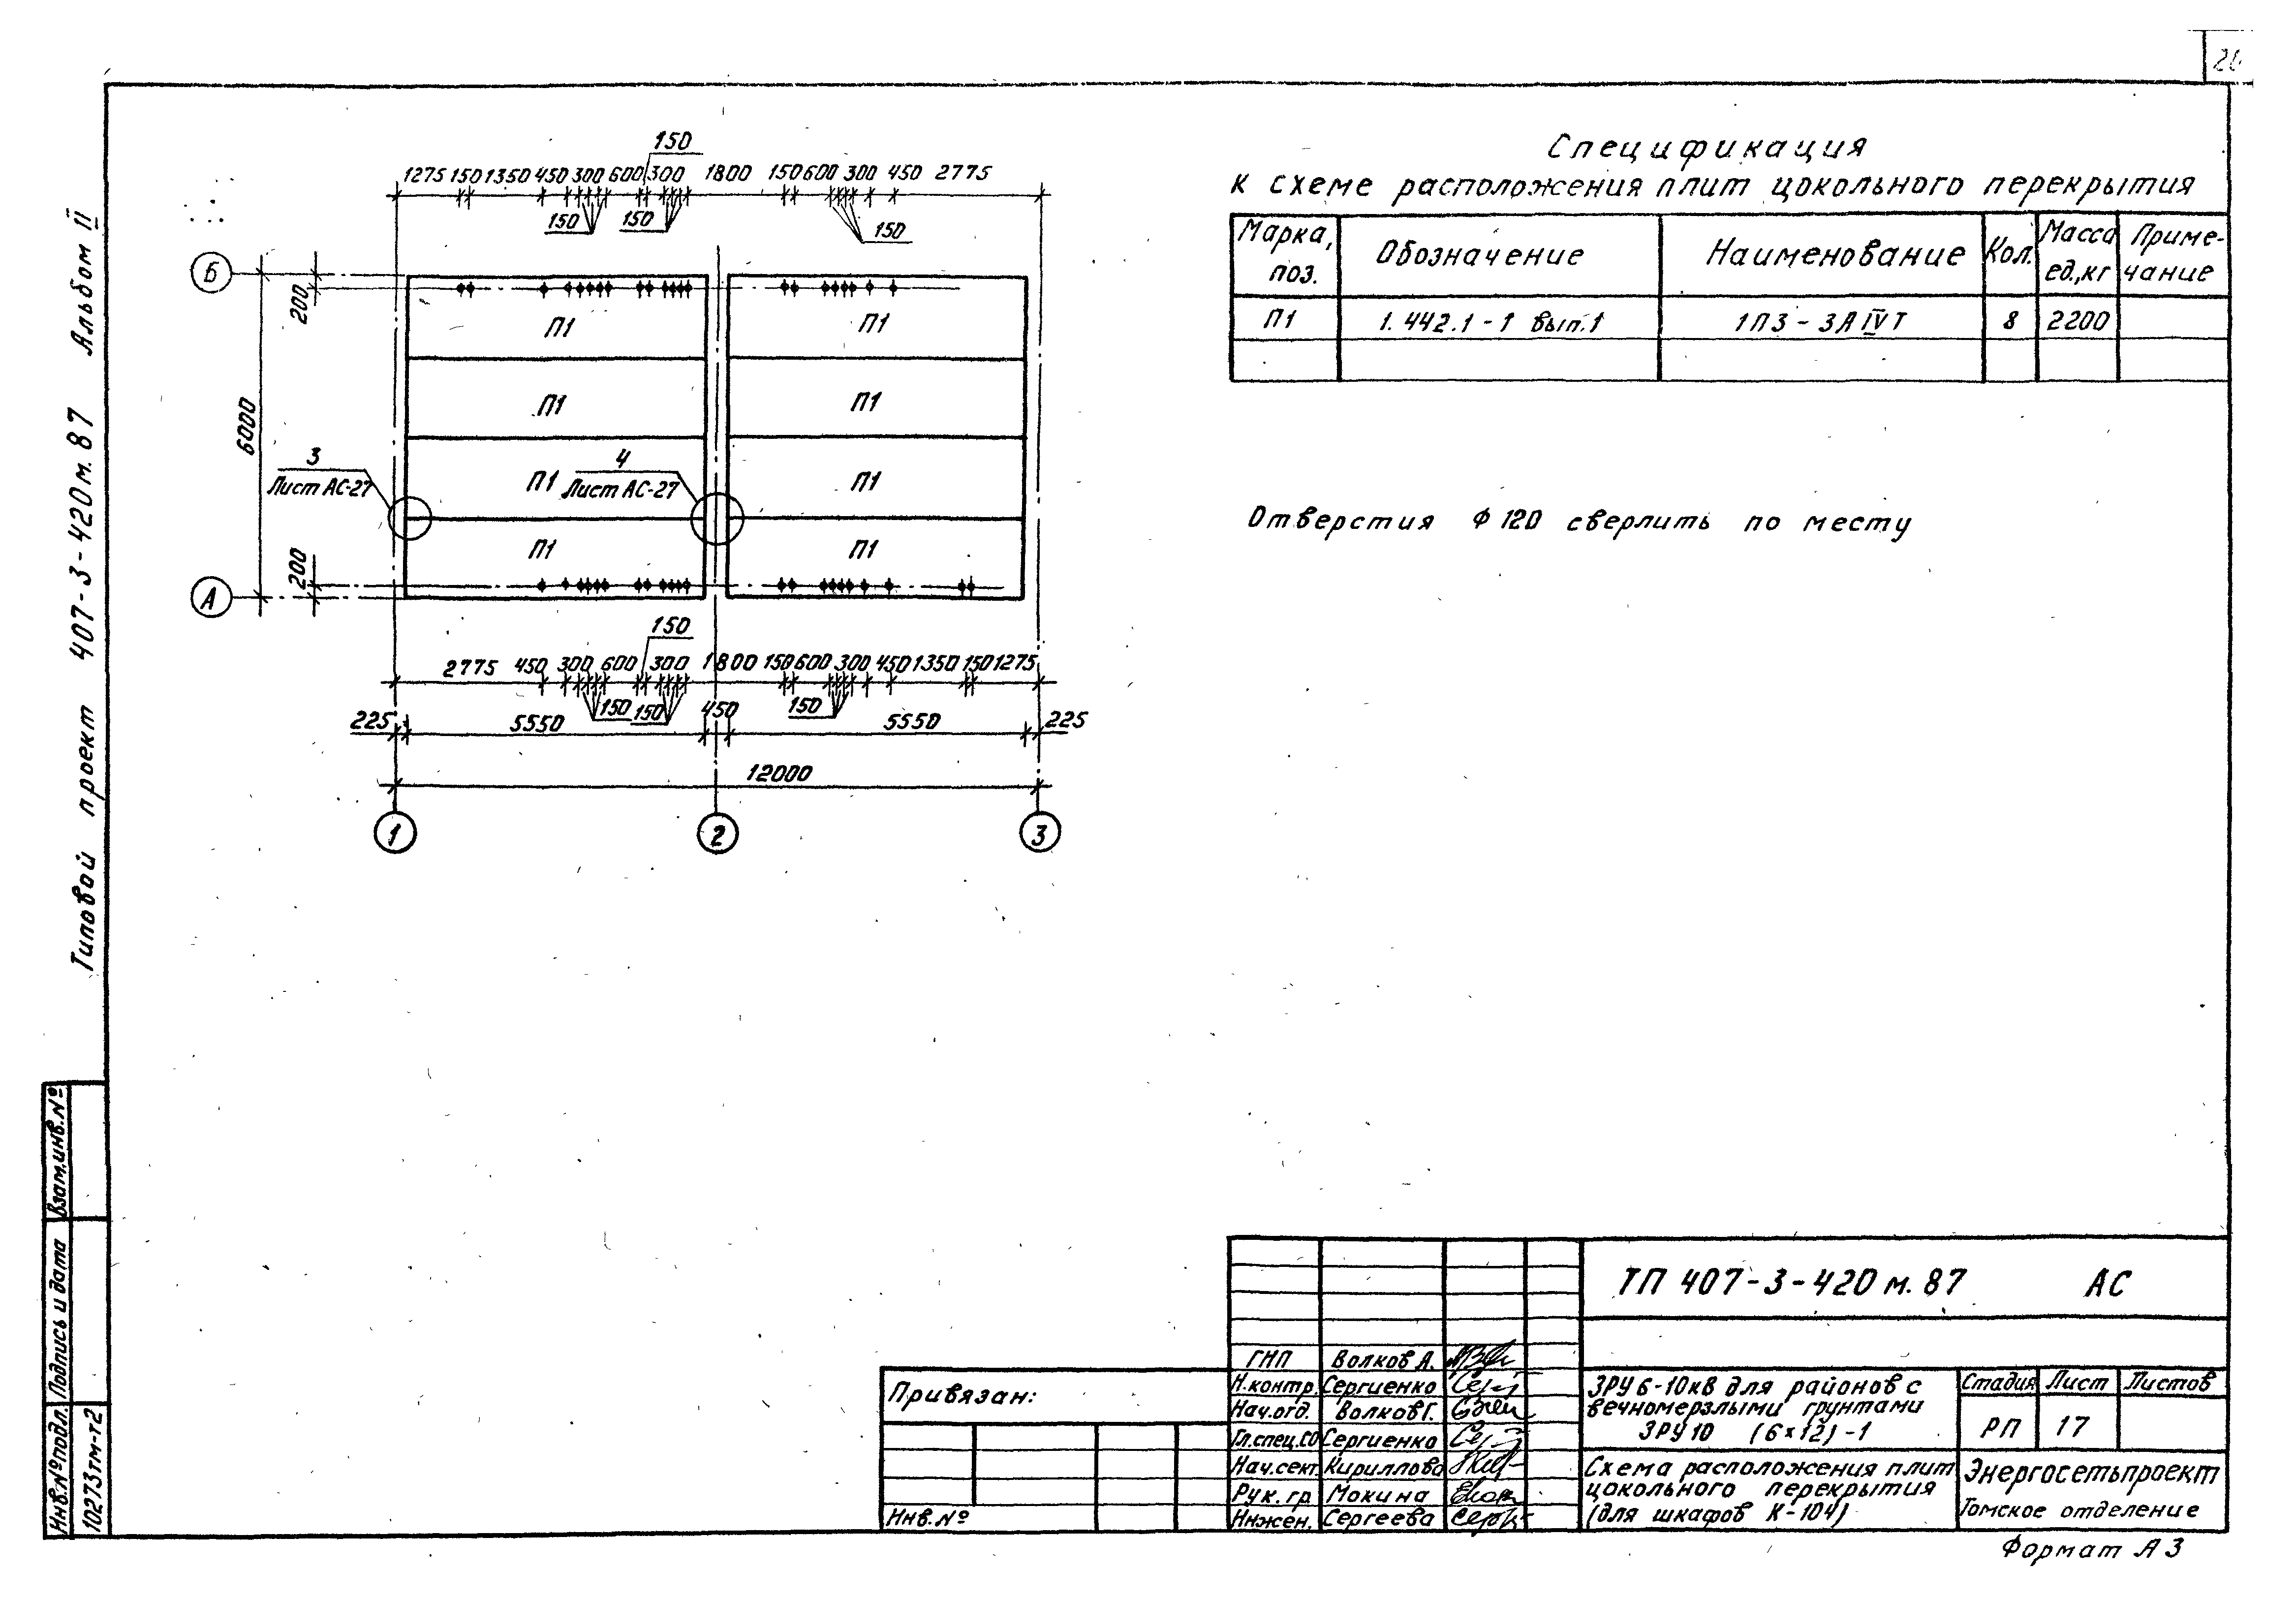 150
1275 150 1350 450 300 600 300 1800 150 600 300 450 2775
150 150 150
Б
200
6000
200
А
П1 П1
П1 П1
П1 П1
П1 П1
3
Лист АС-27
4
Лист АС-27
150
2775 450 300 600 300 1800 150 600 300 450 1350 150 1275
150 150 150
225 5550 450 5550 225
12000
1 2 3
Спецификация
к схеме расположения плит цокольного перекрытия
Марка, поз. Обозначение Наименование Кол. Масса ед.,кг Приме-чание
П1 1.442.1-1 вып.1 1П3-3АIVТ 8 2200
Отверстия ф120 сверлить по месту
Типовой проект 407-3-420м.87 Альбом II
Взам.инв.№
Подпись и дата
Инв.№подл.
10273тм-т2
Привязан:
Инв.№
ТП 407-3-420м.87 АС
ГИП Волков А.
Н.контр. Сергиенко
Нач.отд. Волков Г.
Гл.спец.СО Сергиенко
Нач.сект. Кириллова
Рук.гр Мокина
Инжен. Сергеева
ЗРУ6-10кВ для районов с
вечномерзлыми грунтами
ЗРУ10 (6×12)-1
Стадия Лист Листов
РП 17
Схема расположения плит
цокольного перекрытия
(для шкафов К-104)
Энергосетьпроект
Томское отделение
Формат А3